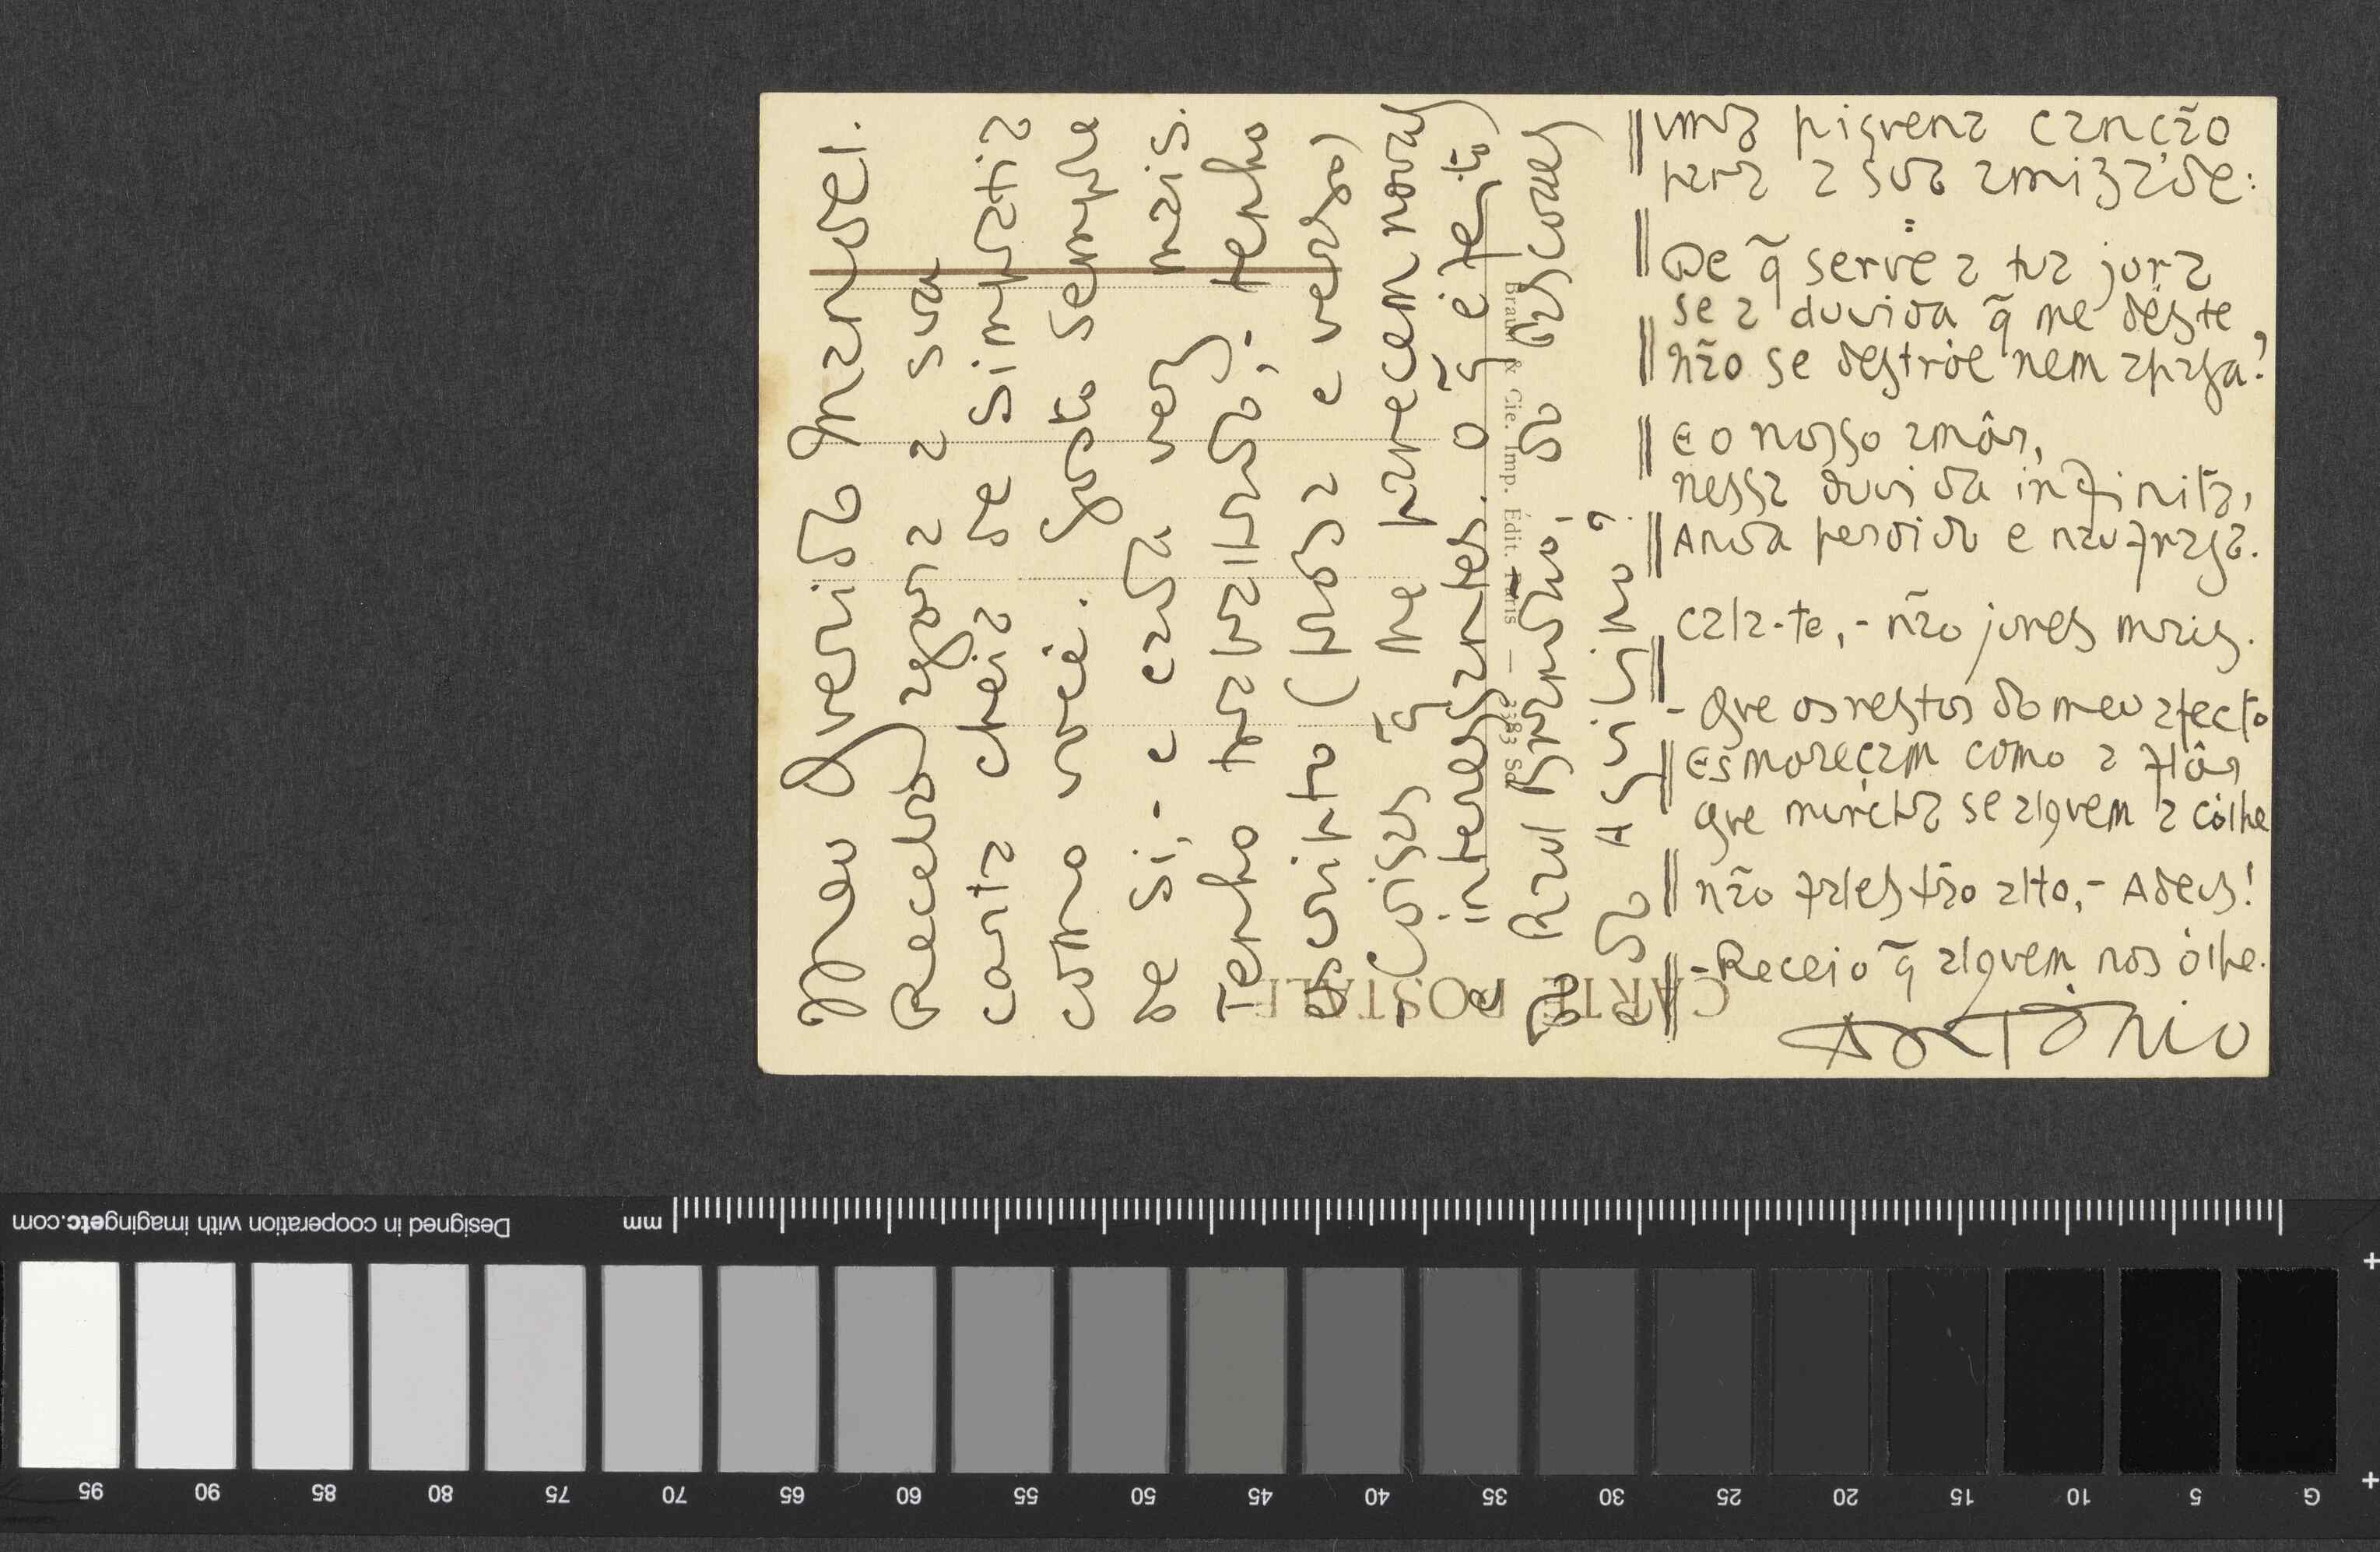 Meu Querido Manuel.
Recebo agora a sua
carta cheia de simpatia
como você. Gosto sempre
de si, - e cada vez mais.
Tenho trabalhado; - tenho
escrito (prosa e verso)
coisas q̃ me parecem novas
e interessantes. O q̃ é feito
do Raul Brandão, do Pascoaes
e do Aquilino?
uma piquena canção
para a sua amizade:
De q̃ serve a tua jura
se a duvida q̃ me déste
não se destróe nem apaga?
E o nosso amôr,
nessa duvida infinita,
Anda perdido e naufraga.
Cala-te, - não jures mais.
- Que os restos do meu afecto
Esmoreçam como a flôr
que murcha se alguem a cólhe
não fales tão alto, - Adeus!
- Receio q̃ alguem nos ólhe.
António
CARTE POSTALE
Braun & Cie. Imp. Édit. Paris
Designed in cooperation with imagingetc.com
mm
95 90 85 80 75 70 65 60 55 50 45 40 35 30 25 20 15 10 5 G